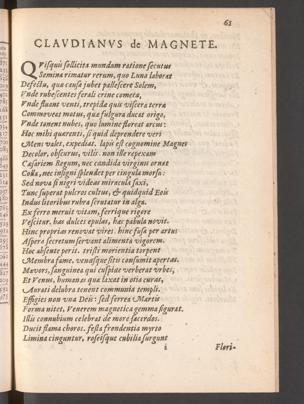 61
CLAVDIANVS de MAGNETE.
QVisquis sollicita mundum ratione secutus
Semina rimatur rerum, quo Luna laborat
Defectu, quæ causa jubet pallescere Solem,
Vnde rubescentes ferali crine cometæ,
Vnde fluant venti, trepidæ quis viscera terræ
Commoveat motus, quæ fulgura ducat origo,
Vnde tonent nubes, quo lumine floreat arcus:
Hoc mihi quærenti, si quid deprendere veri
Mens valet, expediat. lapis est cognomine Magnes
Decolor, obscurus, vilis. non ille repexam
Cæsariem Regum, nec candida virginis ornat
Colla, nec insigni splendet per cingula morsu:
Sed nova si nigri videas miracula saxi,
Tunc superat pulcros cultus, & quidquid Eois
Indus litoribus rubra scrutatur in alga.
Ex ferro meruit vitam, ferrique rigore
Vescitur, has dulces epulas, hæc pabula novit.
Hinc proprias renovat vires. hinc fusa per artus
Aspera secretum servant alimenta vigorem.
Hoc absente perit. tristi morientia torpent
Membra fame. venasque sitis consumit apertas.
Mavors, sanguinea qui cuspide verberat urbes,
Et Venus, humanas quæ laxat in otia curas,
Aurati delubra tenent communia templi.
Effigies non una Deis: sed ferrea Martis
Forma nitet, Venerem magnetica gemma figurat.
Illis connubium celebrat de more sacerdos.
Ducit flamma choros. festa frondentia myrto
Limina cinguntur, roseisque cubilia surgunt
i
Flori-